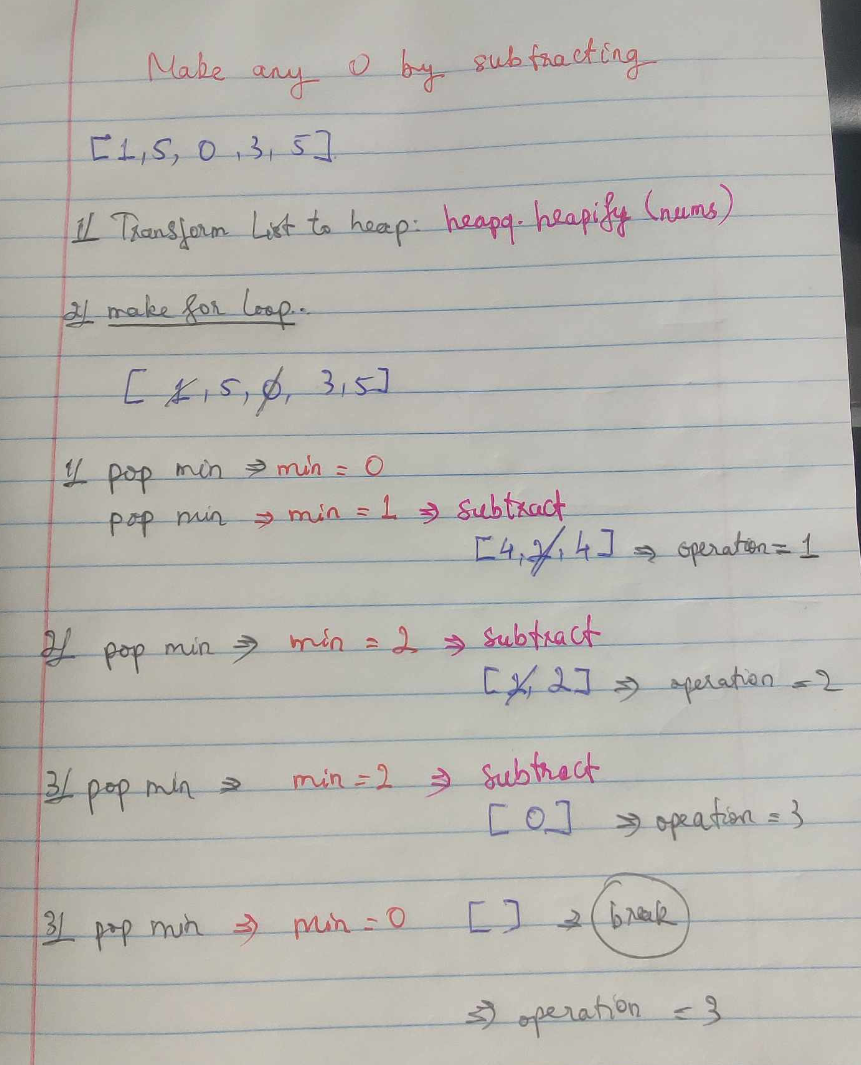 Make any 0 by subtracting
[1,5, 0 ,3, 5]
1/ Transform List to heap: heapq.heapify (nums)
2/ make for loop..
[ 1,5, 0, 3,5]
1/ pop min ⇒ min = 0
pop min ⇒ min = 1 ⇒ subtract
[4,2,4] ⇒ operation = 1
2/ pop min ⇒ min = 2 ⇒ subtract
[2, 2] ⇒ operation = 2
3/ pop min ⇒ min = 2 ⇒ subtract
[ 0 ] ⇒ opeation = 3
3/ pop min ⇒ min = 0 [ ] ⇒ break
⇒ operation = 3